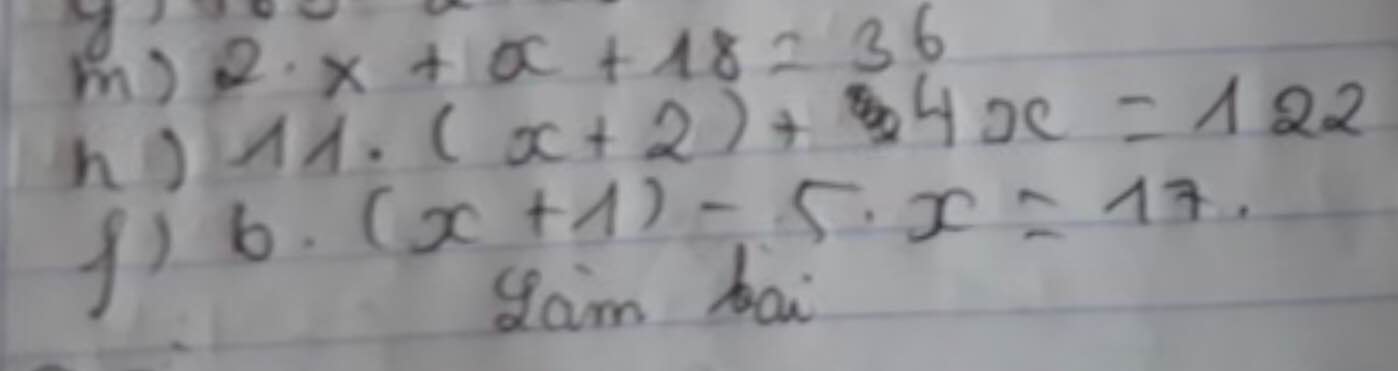 m) 2 . x + x + 18 = 36
n) 11 . ( x + 2 ) + 4x = 122
f) 6 . ( x + 1 ) - 5 . x = 17 .
Làm bài